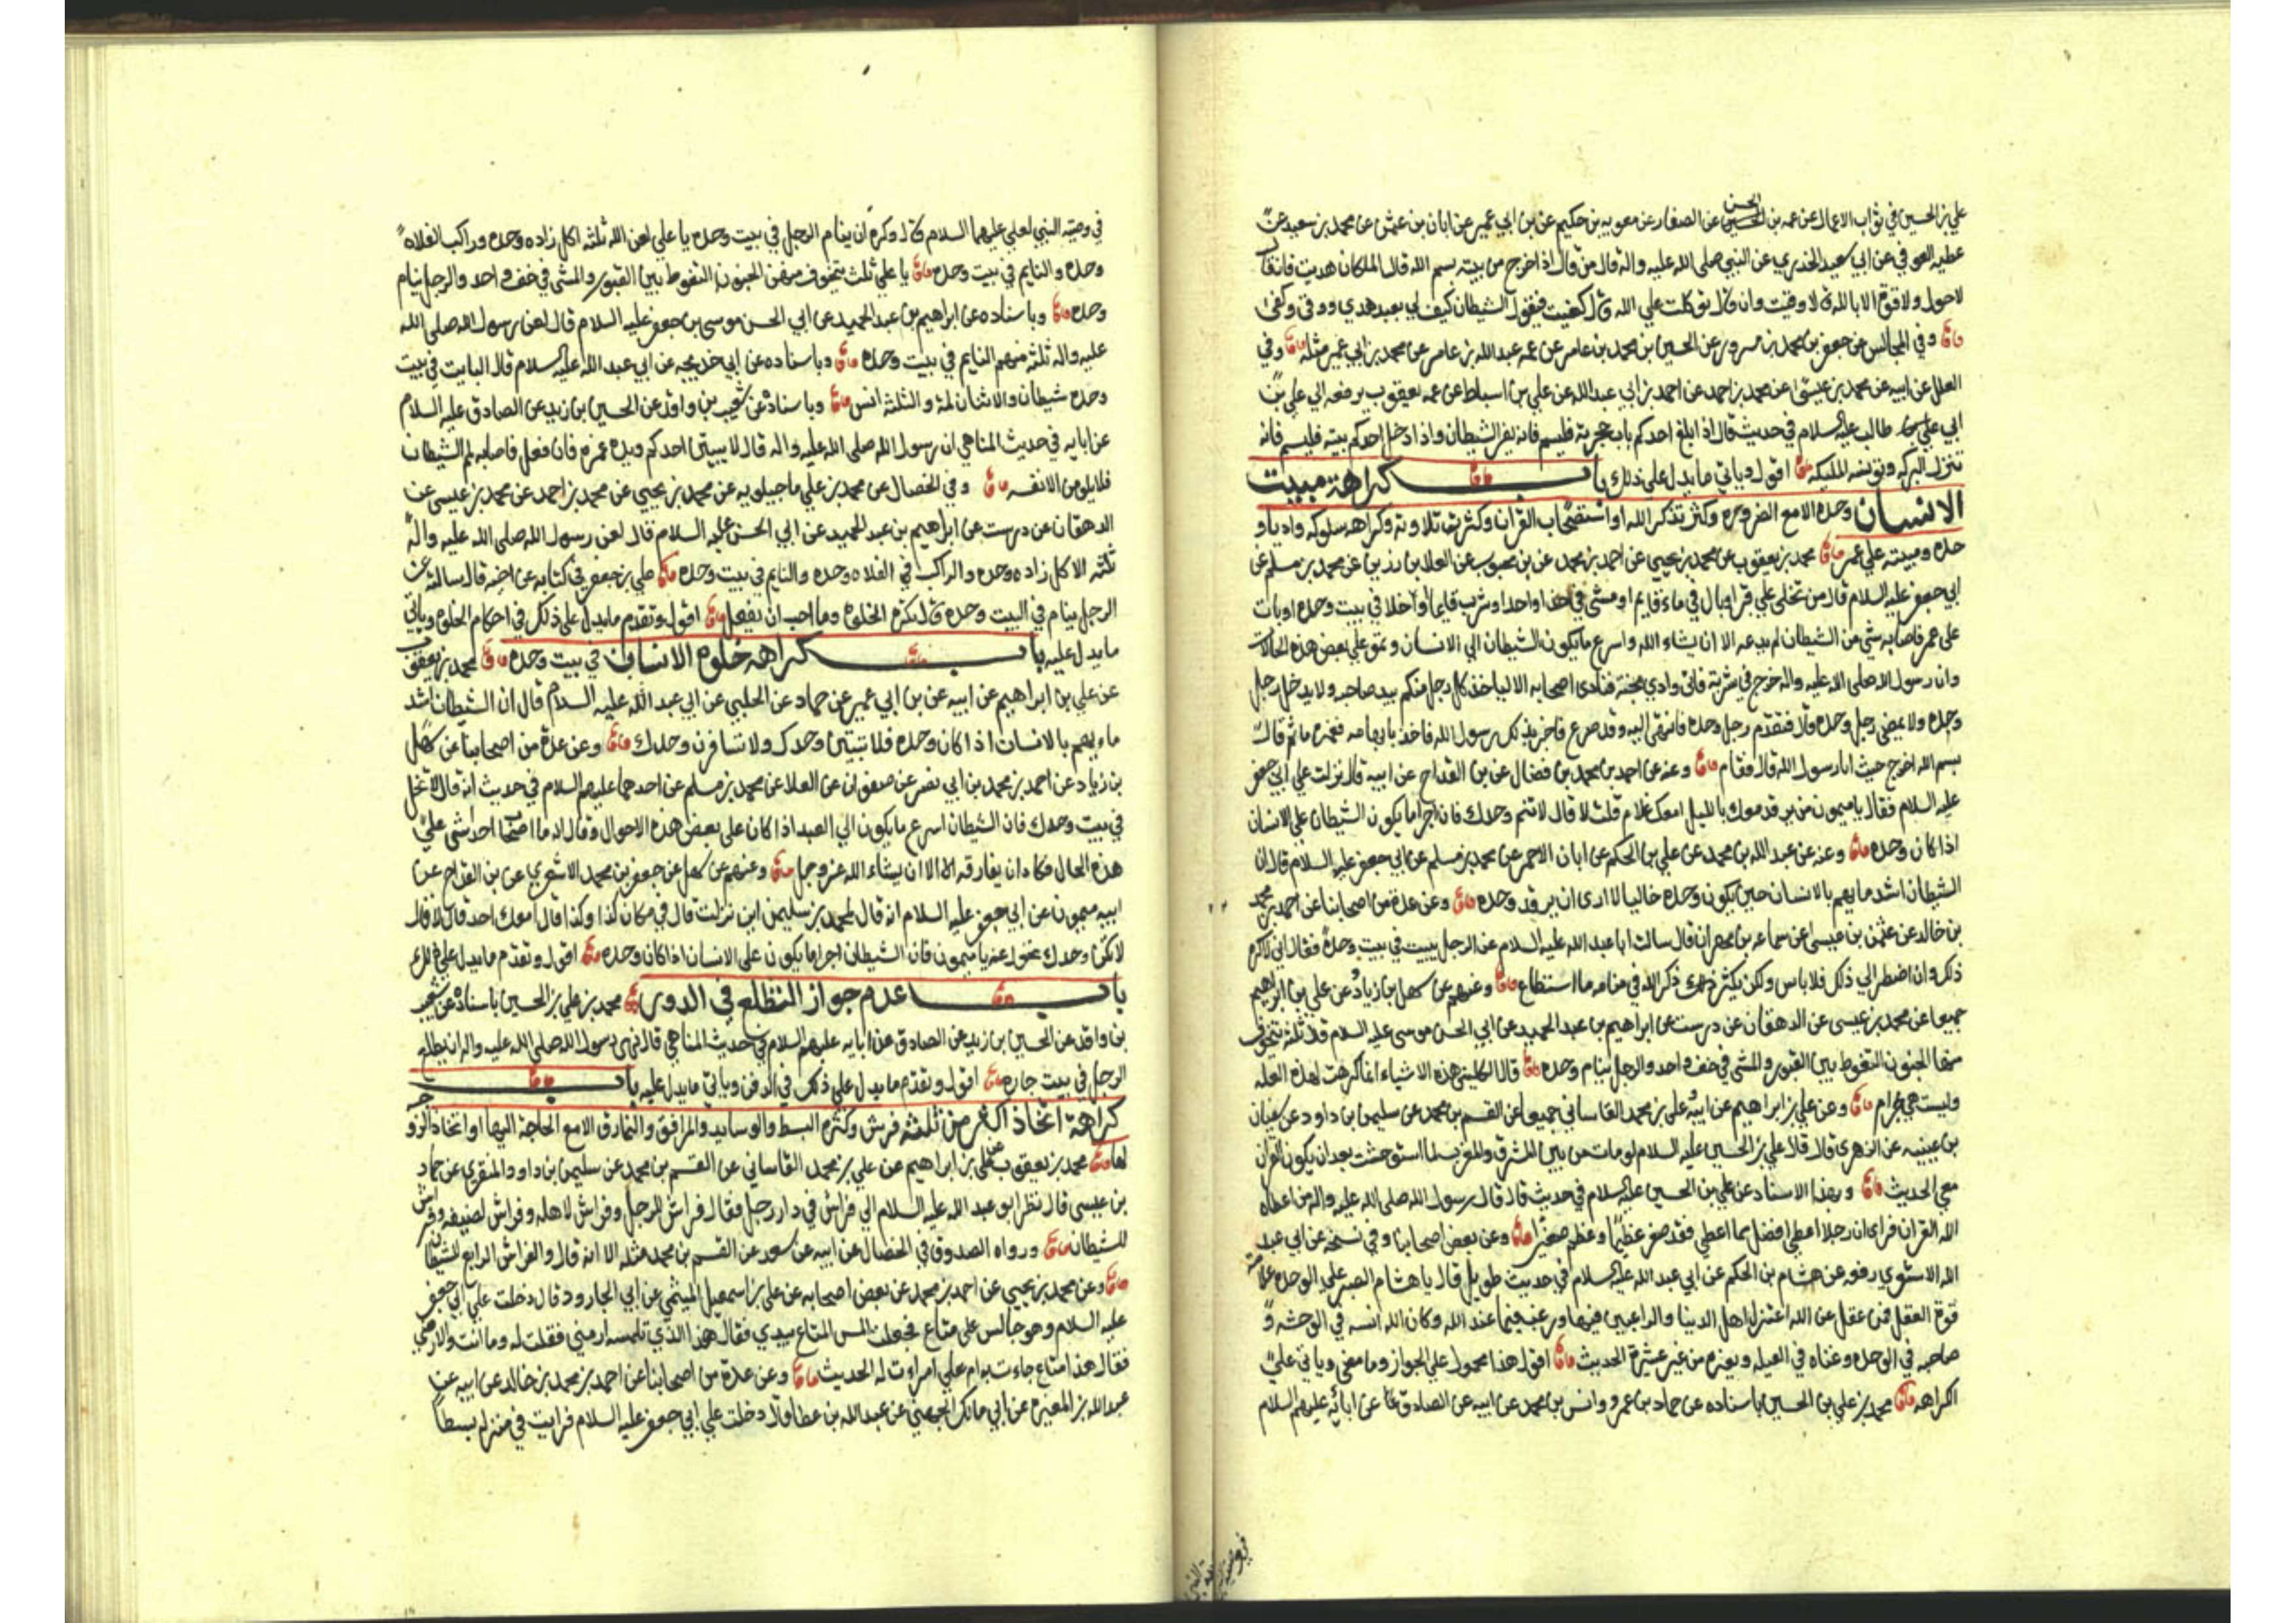 علي بن الحسين في ثواب الاعمال عن عمه بن الحسن عن الصفار عن معويه بن حكيم عن بن ابي عمير عن ابان بن عثمن عن محمد بن سعيد عن
عطيه العوفي عن ابي سعيد الخدري عن النبي صلى الله عليه واله قال من قال اذا خرج من بيته بسم الله قال الملكان هديت فان قال
لاحول ولا قوة الا بالله قالا وقيت وان قال توكلت علي الله قال كفيت فيقول الشيطان كيف لي بعبد هدي ووقي وكفى
وفي المجالس عن جعفر بن محمد بن مسرور عن الحسين بن محمد بن عامر عن عمه عبدالله بن عامر عن محمد بن ابي عمير مثله وفي
العلل عن ابيه عن محمد بن عن محمد بن احمد عن احمد بن ابي عبدالله عن علي بن اسباط عن عمه يعقوب يرفعه الي علي بن
ابي طالب عليه السلام في حديث قال اذا بلغ احدكم باب حجرته فليسم فانه يفر الشيطان واذا دخل احدكم بيته فليسم فانه
تنزل البركه وتونسه المليكه اقول وياتي مايدل على ذلك باب كراهة مبيت
الانسان وحده الا مع الضروره وكثرة ذكر الله او استصحاب القران وكثرة تلاوته وكراهه سلوكه واديا و
حده ومبيته علي غمر محمد بن يعقوب عن محمد بن يحيي عن احمد بن محمد عن بن محبوب عن العلا بن رزين عن محمد بن مسلم عن
ابي جعفر عليه السلام قال من تخلى علي قبر او بال في ماء قايم او مشى في حذاء واحد او شرب قايما او خلا في بيت وحده او بات
على غمر فاصابه شي من الشيطان لم يدعه الا ان يشاء الله واسرع مايكون الشيطان الي الانسان وهو علي بعض هذه الحالات
وان رسول الله صلى الله عليه واله خرج في سرية فاتى وادي مجنة فنادى اصحابه الا لياخذ كل رجل منكم بيد صاحبه ولا يدخل رجل
وحده ولا يمضي رجل وحده قال فتقدم رجل وحده فانتهى اليه وقد صرع فاخبر بذلك رسول الله فاخذ بابهامه فغمزه ما ثم قال
بسم الله اخرج خبيث انا رسول الله قال فقام وعنه عن احمد بن محمد بن فضال عن بن القداح عن ابيه قال نزلت علي ابي جعفر
عليه السلام فقال يا ميمون من يرقد معك بالليل امعك غلام قلت لا قال لا تنم وحدك فان اجرا مايكون الشيطان علي الانسان
اذا كان وحده وعنه عن عبد الله بن محمد عن علي بن الحكم عن ابان الاحمر عن محمد بن مسلم عن ابي جعفر عليه السلام قال ان
الشيطان اشد مايهم بالانسان حين يكون وحده خاليا لا ارى ان يرقد وحده وعن عدة من اصحابنا عن احمد بن محمد
بن خالد عن عثمن بن عيسى عن سماعه بن مهران قال سالت ابا عبد الله عليه السلام عن الرجل يبيت في بيت وحده فقال اني لاكره
ذلك وان اضطر الي ذلك فلا باس ولكن يكثر ذكر الله في منامه ما استطاع وعنهم عن سهل بن زياد وعن علي بن ابراهيم
جميعا عن محمد بن عيسى عن الدهقان عن درست عن ابراهيم بن عبد الحميد عن ابي الحسن موسى عليه السلام قال ثلثة يتخوف
منها الجنون التغوط بين القبور والمشي في خف واحد والرجل ينام وحده قال الكليني هذه الاشياء انما كرهت لهذه العله
وليست هي بحرام وعن علي بن ابراهيم عن ابيه وعلي بن محمد القاساني جميعا عن القسم بن محمد عن سليمن بن داود عن سفيان
بن عيينه عن الزهري قال قال علي بن الحسين عليه السلام لو مات من بين المشرق والمغرب لما استوحشت بعد ان يكون القران
معي الحديث وبهذا الاسناد عن علي بن الحسين عليه السلام في حديث قال قال رسول الله صلى الله عليه واله من اعطاه
الله القران فراى ان رجلا اعطي افضل مما اعطي فقد صغر عظيما وعظم صغيرا وعن بعض اصحابنا وفي نسخه عن ابي عبد
الله الاشعري رفعه عن هشام بن الحكم عن ابي عبد الله عليه السلام في حديث طويل قال يا هشام الصبر علي الوحده علامة
قوة العقل فمن عقل عن الله اعتزل اهل الدنيا والراغبين فيها ورغب فيما عند الله وكان الله انسه في الوحشه و
صاحبه في الوحده وغناه في العيله ومعزه من غير عشيرة الحديث اقول هذا محمول علي الجواز وما مضى وياتي علي
الكراهه محمد بن علي بن الحسين باسناده عن حماد بن عمرو وانس بن محمد عن ابيه عن الصادق عن ابائه عليهم السلام
في وصية النبي
في وصية النبي لعلي عليهما السلام قال وكره ان ينام الرجل في بيت وحده يا علي لعن الله ثلثة اكل زاده وحده وراكب الفلاه
وحده والنايم في بيت وحده يا علي ثلث يتخوف منهن الجنون التغوط بين القبور والمشي في خف واحد والرجل ينام
وحده وباسناده عن ابراهيم بن عبد الحميد عن ابي الحسن موسى بن جعفر عليه السلام قال لعن رسول الله صلى الله
عليه واله ثلثة منهم النايم في بيت وحده وباسناده عن ابي خديجه عن ابي عبد الله عليه السلام قال البايت في بيت
وحده شيطان والاثنان لمة والثلثة انس وباسناده عن شعيب بن واقد عن الحسين بن زيد عن الصادق عليه السلام
عن ابايه في حديث المناهي ان رسول الله صلى الله عليه واله قال لا يبيتن احدكم ويده غمره فان فعل فاصابه لمم الشيطان
فلا يلومن الا نفسه وفي الخصال عن محمد بن علي ماجيلويه عن محمد بن يحيي عن محمد بن احمد عن محمد بن عيسى عن
الدهقان عن درست عن ابراهيم بن عبد الحميد عن ابي الحسن عليه السلام قال لعن رسول الله صلى الله عليه واله
ثلثة الاكل زاده وحده والراكب في الفلاه وحده والنايم في بيت وحده علي بن جعفر في كتابه عن اخيه قال سالته عن
الرجل ينام في البيت وحده قال تكره الخلوة وما احب ان يفعل اقول وتقدم مايدل على ذلك في احكام الخلوة وياتي
مايدل عليه باب كراهه خلوة الانسان في بيت وحده محمد بن يعقوب
عن علي بن ابراهيم عن ابيه عن بن ابي عمير عن حماد عن الحلبي عن ابي عبد الله عليه السلام قال ان الشيطان اشد
ما يهم بالانسان اذا كان وحده فلا تبيتن وحدك ولا تسافرن وحدك وعن عدة من اصحابنا عن سهل
بن زياد عن احمد بن محمد بن ابي نصر عن صفوان عن العلا عن محمد بن مسلم عن احدهما عليهم السلام في حديث انه قال لا تخل
في بيت وحدك فان الشيطان اسرع مايكون الي العبد اذا كان على بعض هذه الاحوال وقال انه ما اصاب احدا شي علي
هذه الحال فكاد ان يفارقه الا ان يشاء الله عز وجل وعنهم عن سهل عن جعفر بن محمد الاشعري عن بن القداح عن
ابيه ميمون عن ابي جعفر عليه السلام انه قال لمحمد بن سليمن اين نزلت قال في مكان كذا وكذا قال امعك احد قال لا قال
لا تكن وحدك تحول عنه يا ميمون فان الشيطان اجرا مايكون على الانسان اذا كان وحده اقول وتقدم مايدل علي ذلك
باب عدم جواز التطلع في الدور محمد بن علي بن الحسين باسناده عن شعيب
بن واقد عن الحسين بن زيد عن الصادق عن ابايه عليهم السلام في حديث المناهي قال نهى رسول الله صلى الله عليه واله ان يطلع
الرجل في بيت جاره اقول وتقدم مايدل علي ذلك في الدفن وياتي مايدل عليه باب
كراهة اتخاذ اكثر من ثلثه فرش وكثرة البسط والوسايد والمرافق والنمارق الا مع الحاجة اليها او اتخاذ الزوجه
لها محمد بن يعقوب عن علي بن ابراهيم عن علي بن محمد القاساني عن القسم بن محمد عن سليمن بن داود المنقري عن حماد
بن عيسى قال نظر ابو عبد الله عليه السلام الي فراش في دار رجل فقال فراش للرجل وفراش لاهله وفراش لضيفه وفراش
للشيطان ورواه الصدوق في الخصال عن ابيه عن سعد عن القسم بن محمد مثله الا انه قال والفراش الرابع للشيطان
وعن محمد بن يحيي عن احمد بن محمد عن بعض اصحابه عن علي بن اسمعيل الميثمي عن ابي الجارود قال دخلت علي ابي جعفر
عليه السلام وهو جالس على متاع فجعلت المس المتاع بيدي فقال هذا الذي تلمسه ارمني فقلت له وما انت والارمني
فقال هذا متاع جاءت به ام علي امراة له الحديث وعن عدة من اصحابنا عن احمد بن محمد بن خالد عن ابيه عن
عبدالله بن المغيره عن ابي مالك الجهني عن عبدالله بن عطا قال دخلت علي ابي جعفر عليه السلام فرايت في منزله بسطا